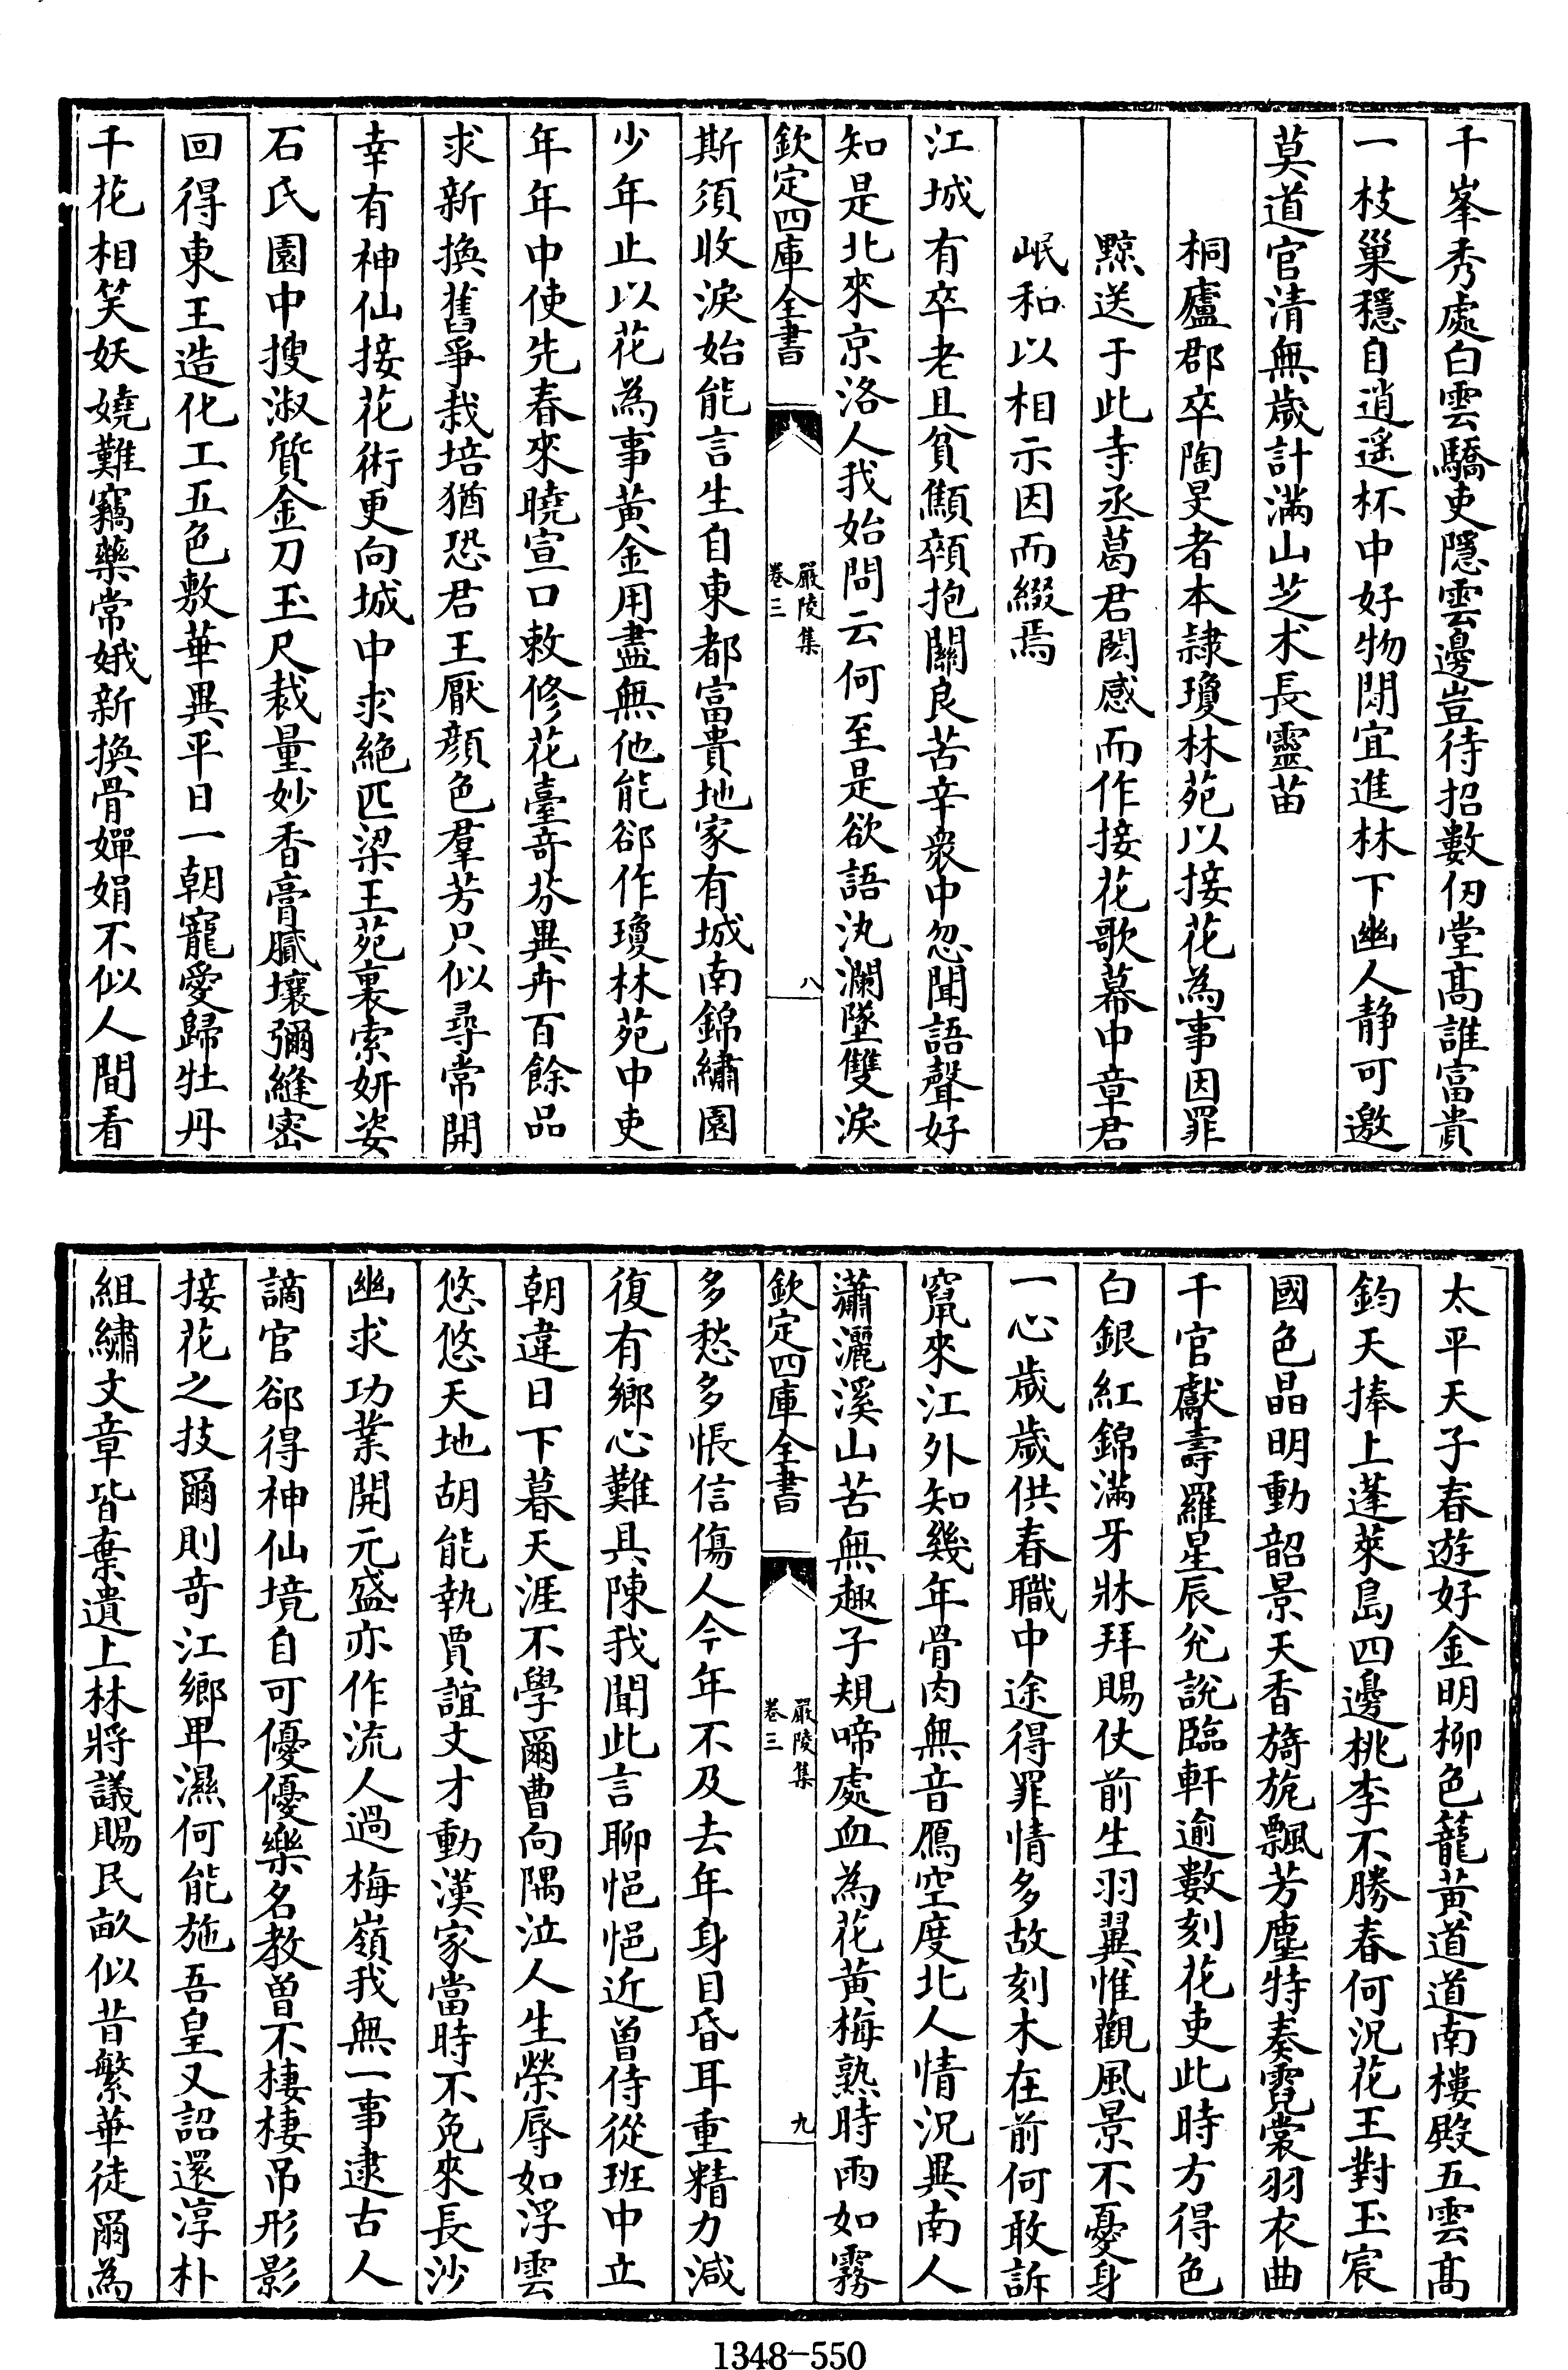 千峯秀處白雲驕吏隱雲邊豈待招數仞堂髙誰富貴
一枝巢穩自逍遥杯中好物閒宜進林下幽人靜可邀
莫道官清無歳計滿山芝术長靈苗
桐廬郡卒陶旻者本隷瓊林苑以接花為事因罪
黥送于此寺丞葛君閎感而作接花歌幕中章君
岷和以相示因而綴焉
江城有卒老且貧顦顇抱關良苦辛衆中忽聞語聲好
知是北來京洛人我始問云何至是欲語汍瀾墜雙淚
欽定四庫全書
嚴陵集
卷三
八
斯須收淚始能言生自東都富貴地家有城南錦繡園
少年止以花為事黄金用盡無他能郤作瓊林苑中吏
年年中使先春來曉宣口敕修花臺奇芬異卉百餘品
求新換舊爭栽培猶恐君王厭顔色羣芳只似尋常開
幸有神仙接花術更向城中求絶匹梁王苑裏索妍姿
石氏園中搜淑質金刀玉尺裁量妙香膏膩壤彌縫密
回得東王造化工五色敷華異平日一朝寵愛歸牡丹
千花相笑妖嬈難竊藥常娥新換骨嬋娟不似人間看
太平天子春遊好金明柳色籠黄道道南樓殿五雲髙
鈞天捧上蓬萊島四邊桃李不勝春何況花王對玉宸
國色晶明動韶景天香旖旎飄芳塵特奏霓裳羽衣曲
千官獻壽羅星辰兊說臨軒逾數刻花吏此時方得色
白銀紅錦滿牙牀拜賜仗前生羽翼惟觀風景不憂身
一心歳歳供春職中途得罪情多故刻木在前何敢訴
竄來江外知幾年骨肉無音鴈空度北人情況異南人
瀟灑溪山苦無趣子規啼處血為花黄梅熟時雨如霧
欽定四庫全書
嚴陵集
卷三
九
多愁多悵信傷人今年不及去年身目昏耳重精力減
復有鄉心難具陳我聞此言聊悒悒近曽侍從班中立
朝違日下暮天涯不學爾曹向隅泣人生榮辱如浮雲
悠悠天地胡能執賈誼文才動漢家當時不免來長沙
幽求功業開元盛亦作流人過梅嶺我無一事逮古人
謫官郤得神仙境自可優優樂名教曽不棲棲吊形影
接花之技爾則奇江鄉卑濕何能施吾皇又詔還淳朴
組繡文章皆棄遺上林將議賜民畝似昔繁華徒爾為
1348-550